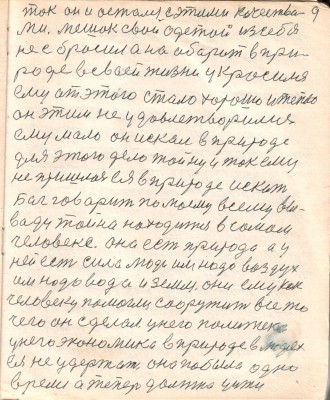 ток он и остался с этими качества- 9
ми. мешок свой одетой из себя
не сбросил а на обарот в при-
роде в сваей жизни укросился
ему от этого стало хорошо и тепло
он этим не удовлетворился
ему мало он искал в природе
для этого дело тойну и ток ему
не пришлося в природе искат
Баг говарит по моему всему вы-
ваду тойна находится в самом
человеке. она ест природа а у
ней ест сила люди им надо воздух
им надо вода и земля, они ему как
человеку помогли соорутит все то
чего он сделал у него политека
у него экономика в природе в людех
ся не удержат. она была одно
время а тепер должна уйти